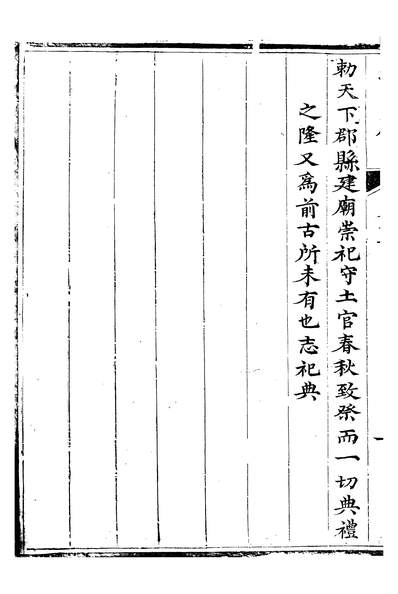 勅天下郡縣建廟崇祀守土官春秋致祭而一切典禮
之隆又爲前古所未有也志祀典